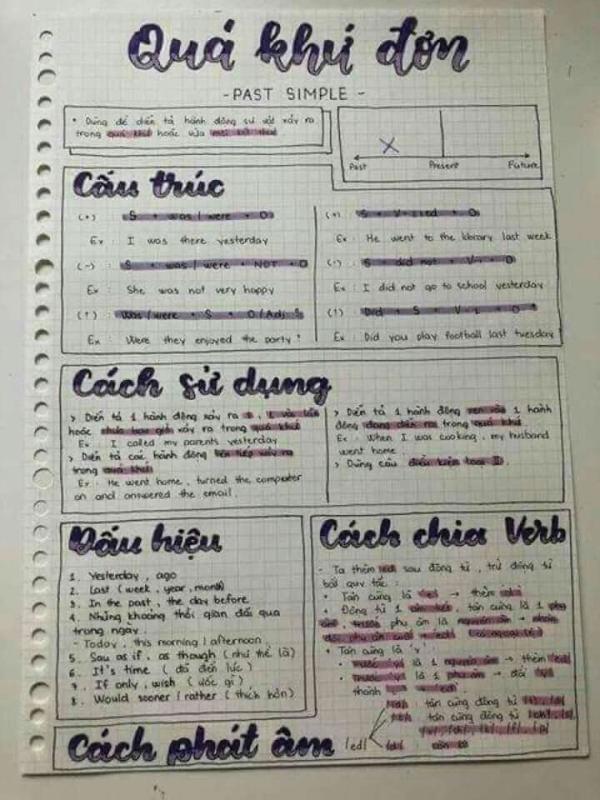 Quá khứ đơn
- PAST SIMPLE -
• Dùng để diễn tả hành động sự vật xảy ra
trong quá khứ hoặc vừa mới kết thúc
Past Present Future
Cấu trúc
(+) S + was / were + O
Ex : I was there yesterday
(-) S + was / were + NOT + O
Ex : She was not very happy
(?) Was / were + S + O / Adj ?
Ex : Were they enjoyed the party ?
(+) S + V-2 / ed + O
Ex : He went to the library last week
(-) S + did not + V-1 + O
Ex : I did not go to school yesterday
(?) Did + S + V-1 + O ?
Ex : Did you play football last tuesday
Cách sử dụng
> Diễn tả 1 hành động xảy ra
hoặc xảy ra trong quá khứ
Ex : I called my parents yesterday
> Diễn tả các hành động liên tiếp xảy ra
trong quá khứ
Ex : He went home , turned the computer
on and answered the email.
> Diễn tả 1 hành động xen vào 1 hành
động đang diễn ra trong quá khứ
Ex : When I was cooking , my husband
went home
> Dùng câu điều kiện loại II
Dấu hiệu
1. Yesterday , ago
2. Last ( week , year , month)
3. In the past , the day before
4. Những khoảng thời gian đã qua
trong ngày
- Today , this morning / afternoon
5. Sau as if , as though ( như thể là)
6. It's time ( đã đến lúc)
7. If only , wish ( ước gì )
8. Would sooner / rather ( thích hơn)
Cách chia Verb
- Ta thêm "ed" sau động từ , trừ động từ
bất quy tắc :
• Tận cùng là "e" → thêm
• Động từ 1 âm tiết , tận cùng là 1 phụ
âm , trước phụ âm là nguyên âm → nhân
đôi phụ âm cuối + "ed"
• Tận cùng là "y" :
• Trước "y" là 1 nguyên âm → thêm "ed"
• Trước "y" là 1 phụ âm → đổi "y"
thành
/id/ : tận cùng động từ /t/, /d/
/t/ : tận cùng động từ
/d/ : còn lại
Cách phát âm /ed/